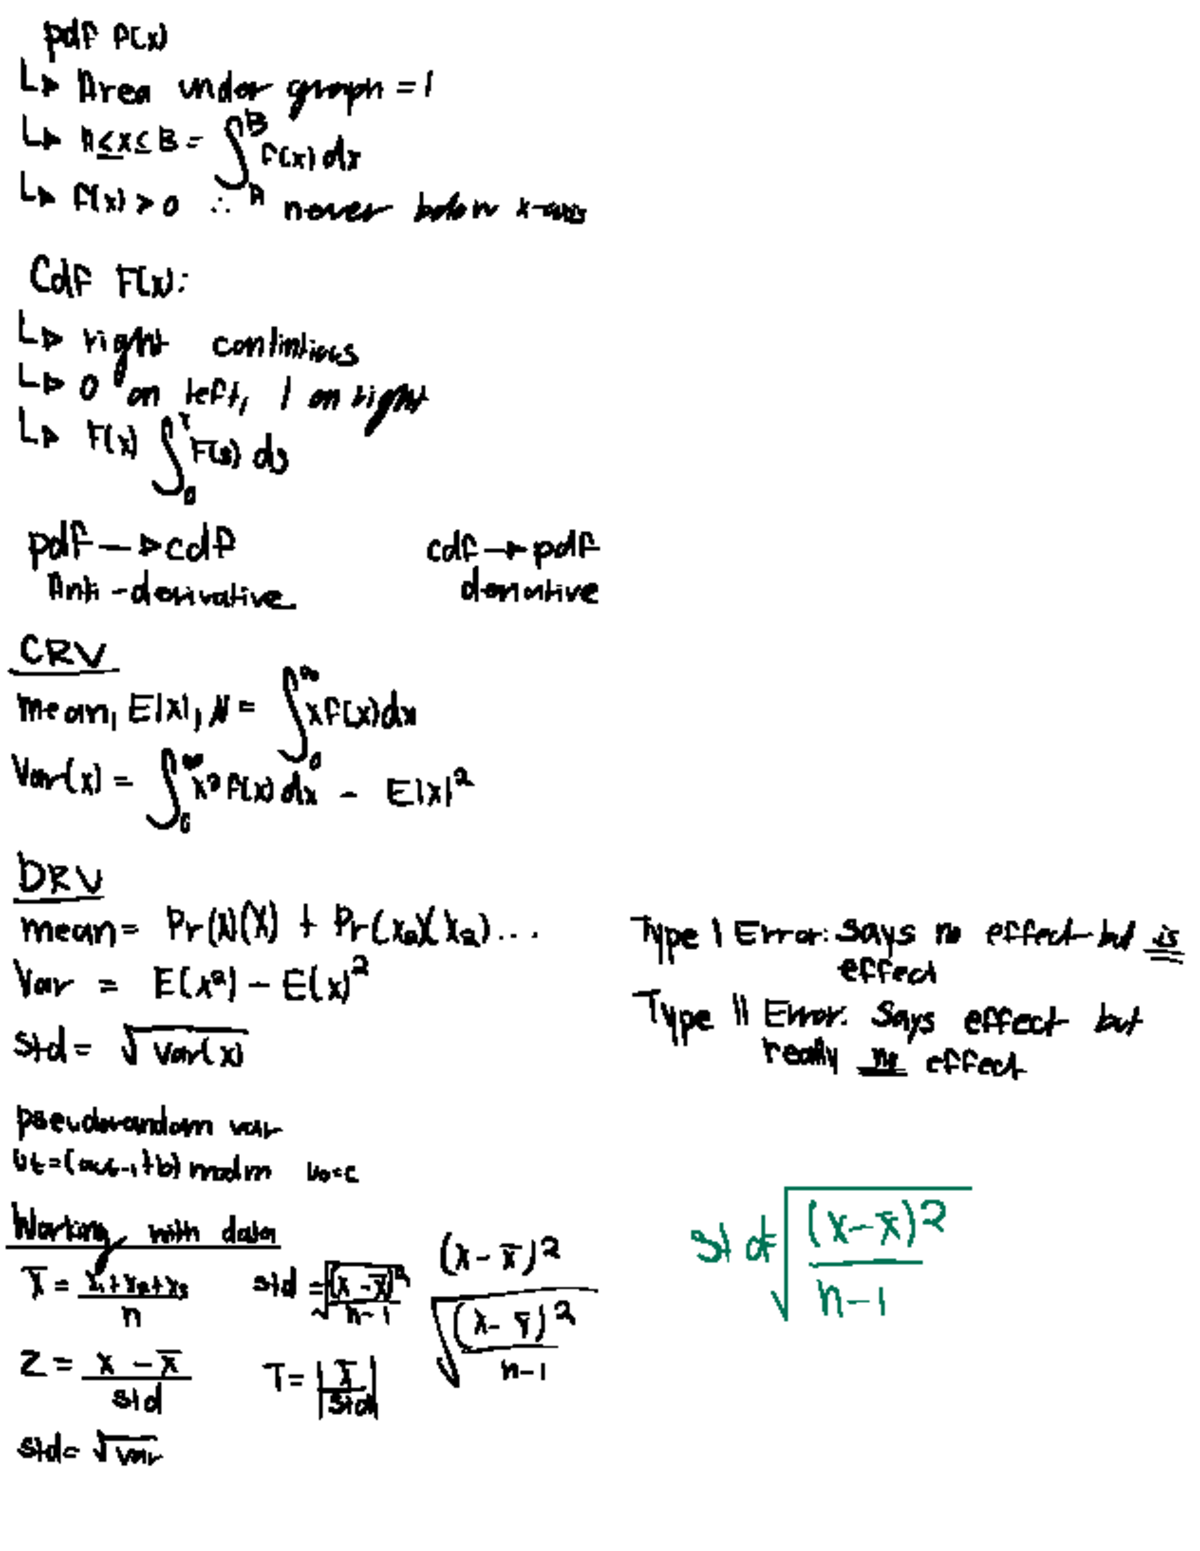 pdf f(x)
↳ Area under graph = 1
↳ A ≤ x ≤ B = ∫_A^B f(x) dx
↳ f(x) > 0 ∴ never below x-axis
Cdf F(x):
↳ right contintious
↳ 0 on left, 1 on right
↳ F(x) ∫_0^x F(s) ds
pdf → cdf
Anti-derivative
cdf → pdf
derivative
CRV
mean, E|x|, μ = ∫_0^∞ x f(x) dx
Var(x) = ∫_0^∞ x² f(x) dx - E|x|²
DRV
mean = Pr(x)(x) + Pr(x₂)(x₂)...
Var = E(x²) - E(x)²
Std = √Var(x)
Type I Error: Says no effect but is
effect
Type II Error: Says effect but
really no effect
pseudorandom var
Ut = (aut-1 + b) mod m u₀ = c
Working with data
x̄ = x₁+x₂+x₃ / n
std = √((x - x̄)² / n-1)
(x - x̄)² / √((x - x̄)² / n-1)
std = √((x - x̄)² / n-1)
Z = x - x̄ / std
T = |x̄ / std|
std = √var